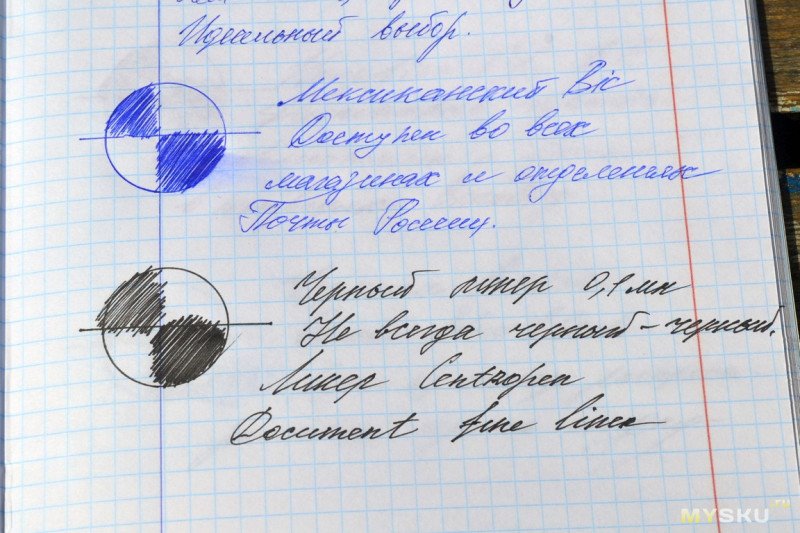 Идеальный выбор.
Мексиканский Bic
Доступен во всех
магазинах и отделениях
Почты России.
Черный линер 0,1 мм
Не всегда черный-черный.
Линер Centropen
Document fine liner
MYSKU